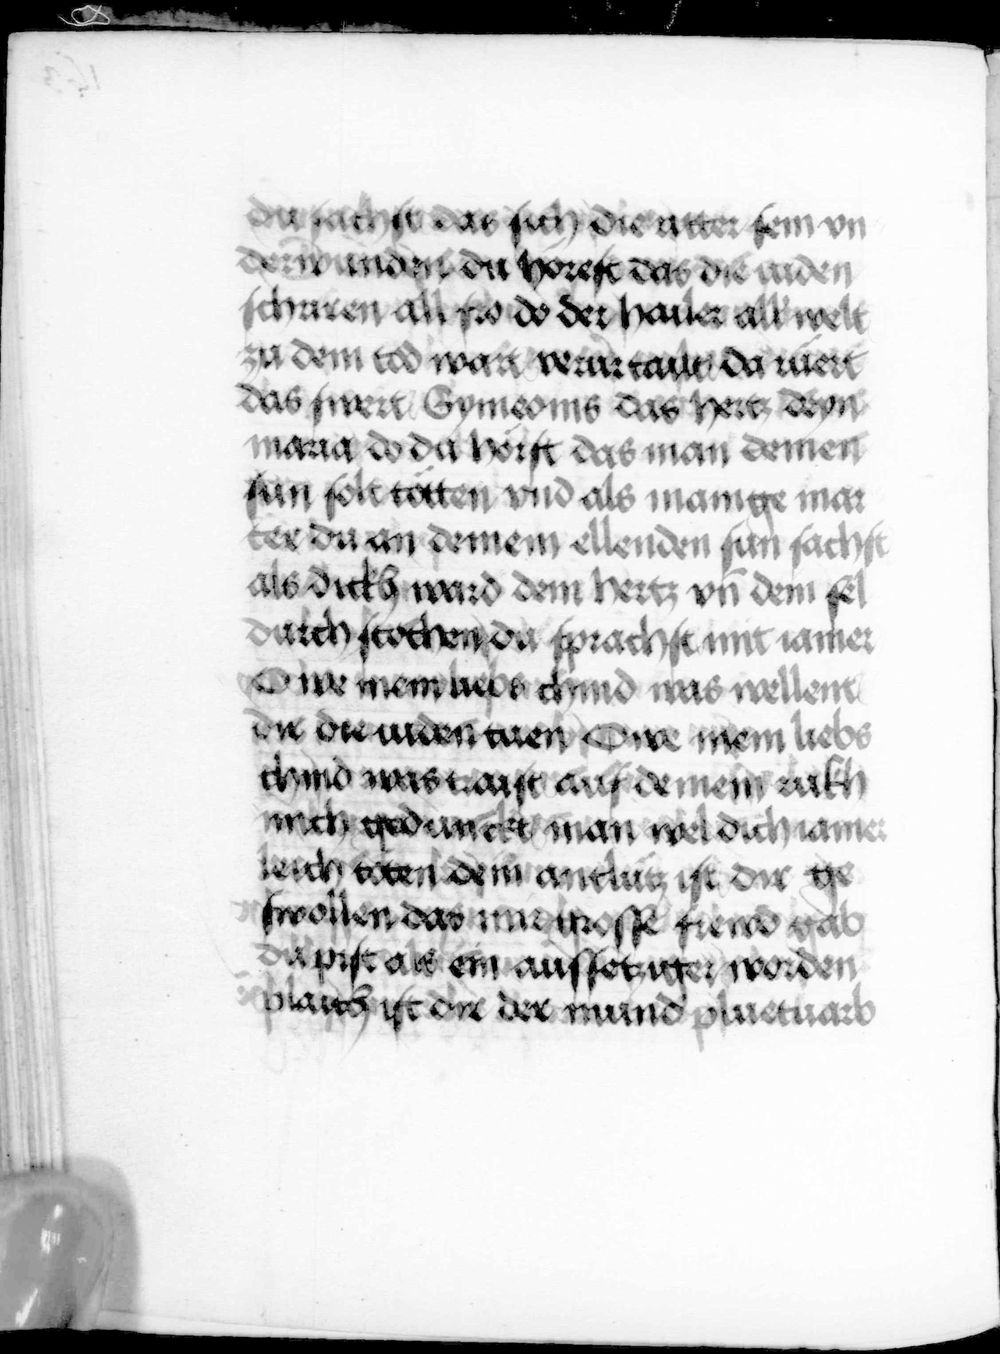 du sachst das sich die ritter sein vn
derwunden du hörest das die iuden
schriren all so do der hailer all welt
zu dem tod wart verurtailt da rüert
das swert Symeonis das hertz deyn
maria do du hörst das man deinen
sun solt tötten vnd als manige mar
ter du an deinem ellenden sun sachst
als dickh ward dein hertz vn̄ dein sel
durch stochen du sprachst mit iamer
O we mein liebs chind was wellent
dir die iuden tuen O we mein liebs
chind was traist auf deinem rukh
mich gedunckt man wel dich iamer
leich töten dein antlütz ist dir ge
swollen das nie frewd gab
du pist als ein aussetziger worden
plaich ist dir der mund pluetuarb